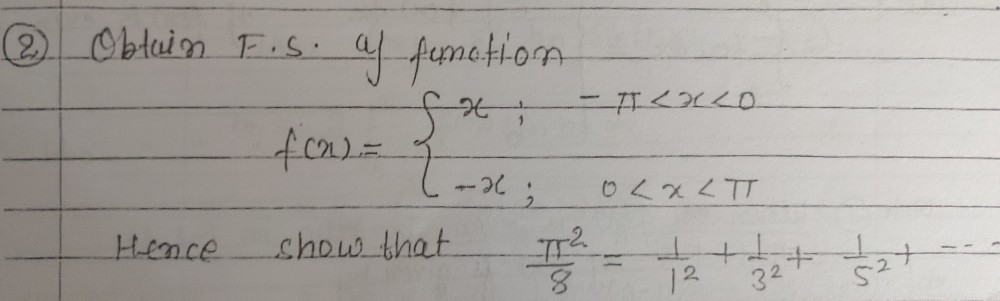 ② Obtain F.S. of function
f(x) = { x ; -π < x < 0
-x ; 0 < x < π
Hence show that π²/8 = 1/1² + 1/3² + 1/5² + ---